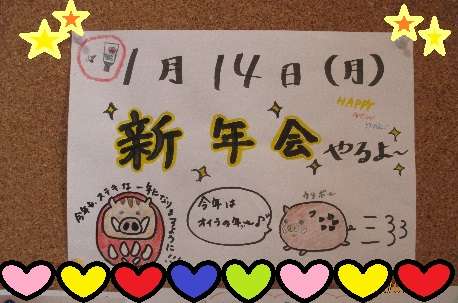 1月14日(月)
HAPPY
NEW
YEAR
新年会やるよ〜
今年も、ステキな一年になりますように
今年は
オイラの年ッ〜♪